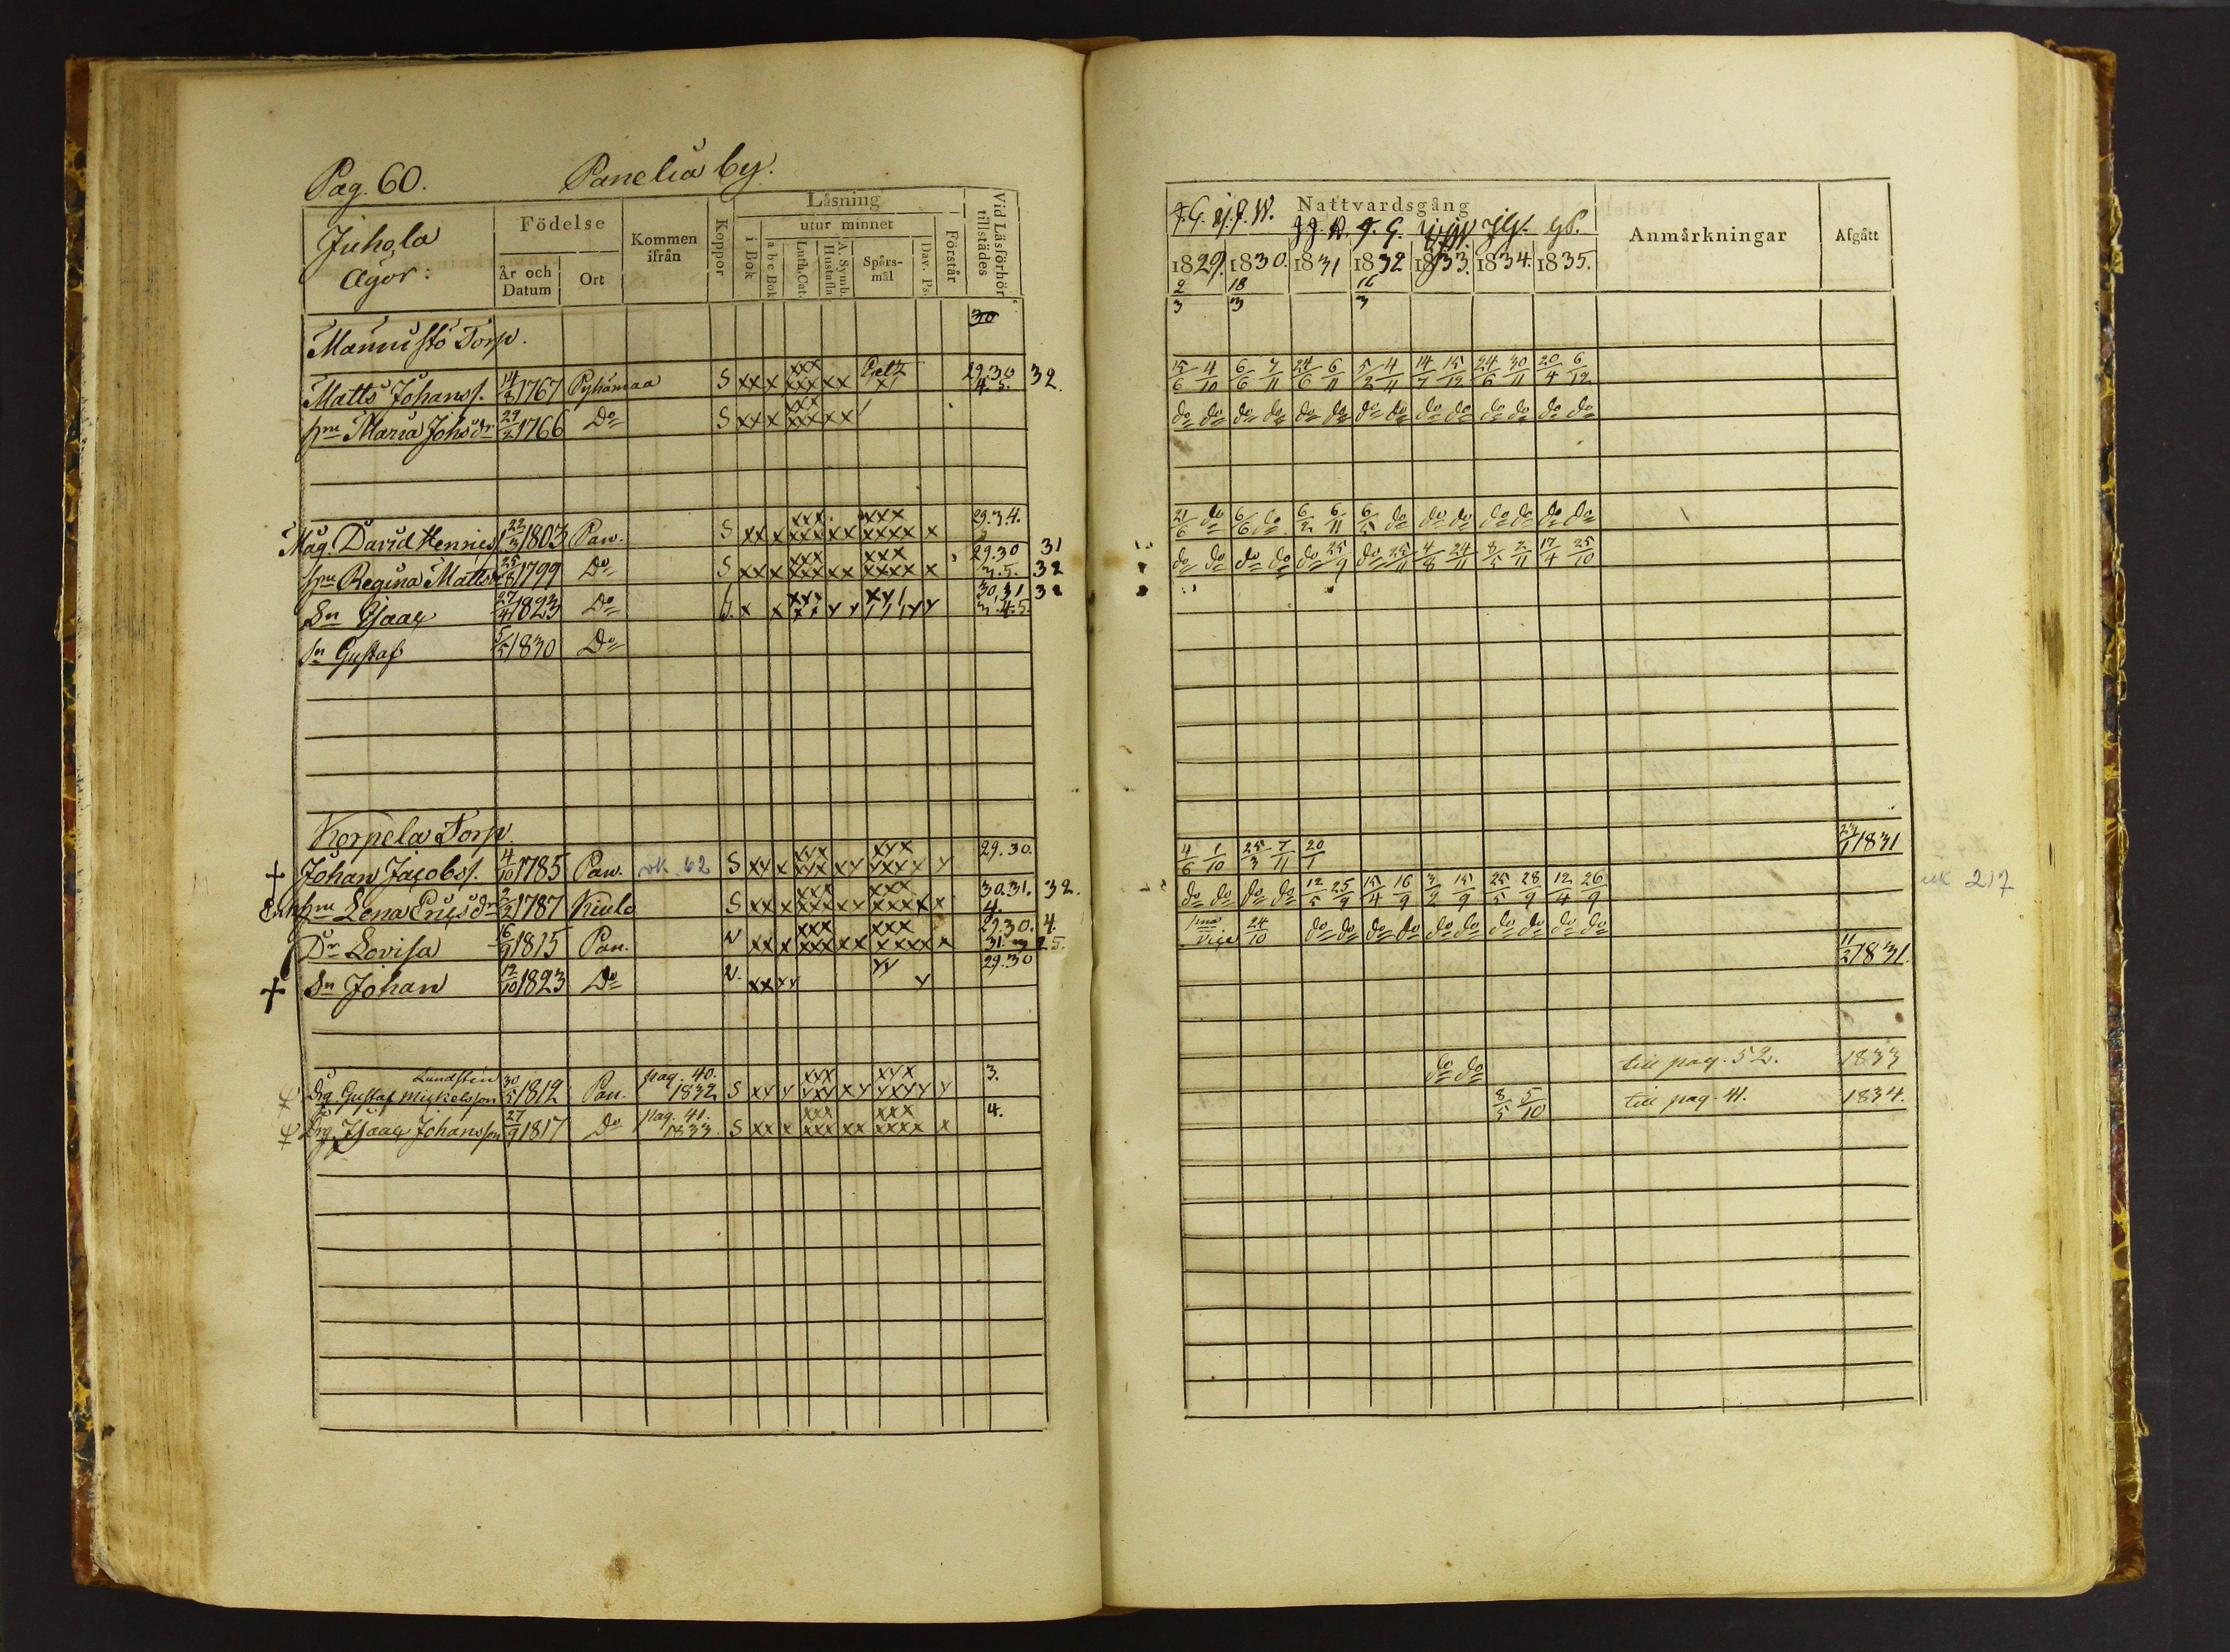 Pag. 60. Panelia by.
Juhola
Ägor:
Födelse
År och Datum
Ort
Kommen ifrån
Koppor
Läsning
i Bok
utur minnet
a b c Bok
Luth. Cat.
A. Symb. Hustafla
Spörs-mål
Dav. Ps.
Förstår
Vid Läsförhör tillstädes
30
Mannistö Torp.
Matts Johanss. 14/8 1767 Pyhämaa S xx x xxx xxx xx 29.30 4.5. 32.
hu Maria Johsdr 29/2 1766 Do S xx x xxx xxx xx
Måg. David Henrics. 22/3 1803 Pan. S xx x xxx xxx xx xxx xxxx x 29.3.4.
hu Regina Mattsdr 25/8 1799 Do S xx x xxx xxx xx xxx xxxx x 29.30 31 3.5. 32
Sn Isaac 27/4 1823 Do x x 30.31 32 3.4.5.
Sn Gustaf 5/5 1830 Do
Korpela Torp
† Johan Jacobs. 4/10 1785 Pan. rk. 62 S xx x xxx xxx xx xxx xxxx x 29.30.
Enk hu Lena Ericsdr 2/2 1787 Kiulo S xx x xxx xxx xx xxx xxxx x 30.31. 32. 4.
Dr Lovisa 16/9 1815 Pan. v xx x xxx xxx xx xxx xxxx x 29.30. 4. 31. 3 25.
† Sn Johan 12/10 1823 Do v. xx xx 29.30
Lundstén
Drg. Gustaf Mickelsson 30/5 1812 Pan. pag. 40. 1832 S xx x xxx xxx xx xxx xxxx x 3.
Drg. Isaac Johansson 27/9 1817 Do pag. 41. 1833. S xx x xxx xxx xx xxx xxxx x 4.
Nattvardsgång
Anmärkningar
Afgått
1829. 1830. 1831 1832 1833. 1834. 1835.
2/3 18/3 16/3
15/6 4/10 6/6 7/11 24/6 6/11 5/2 4/11 14/7 15/12 24/6 30/11 20/4 6/12
do do do do do do do do do do do do do do
21/6 do 6/6 do 6/2 6/11 6/5 do do do do do do do
do do do do do 25/9 do 25/11 4/8 24/11 8/5 2/11 17/4 25/10
4/6 1/10 25/3 7/11 20/1 23/1 1831
do do do do 12/5 25/9 15/4 16/9 3/2 15/9 25/5 28/9 12/4 26/9 uk 217
24/10 do do do do do do do do do do
11/2 1831.
do do till pag. 52. 1833
8/5 5/10 till pag. 41. 1834.